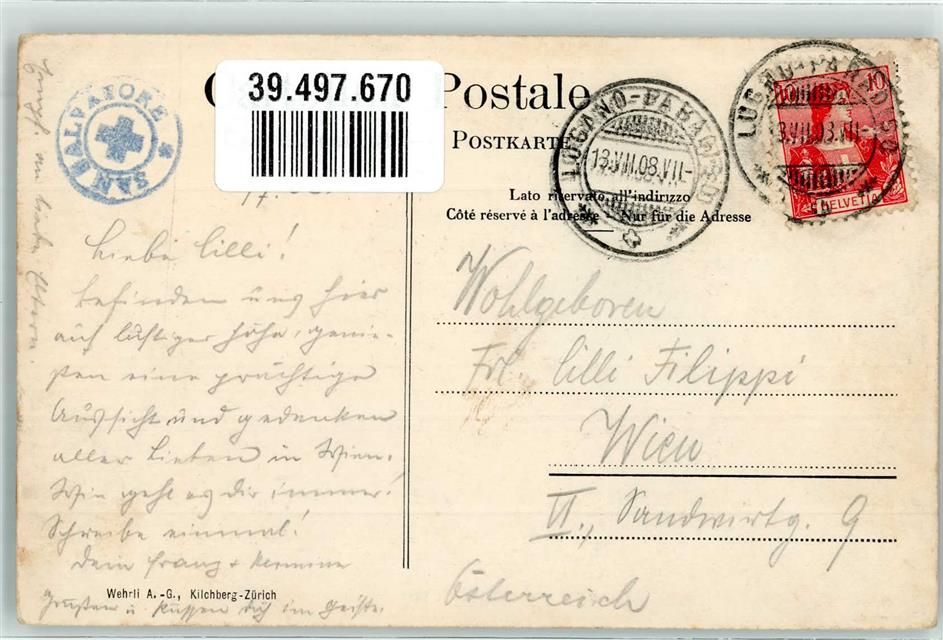 39.497.670
Postale
POSTKARTE
Lato riservato all'indirizzo
Côté réservé à l'adresse Nur für die Adresse
SAN SALVATORE
LUGANO-PARADISO
13.VII.08.VII-
LUGANO-PARADISO
13.VII.08.VII-
10
HELVETIA
Liebe Lilli!
Befinden uns hier
auf luftiger Höhe, genie-
ßen eine prächtige
Aussicht und gedenken
aller Lieben in Wien.
Wie geht es dir immer?
Schreibe einmal!
Dein Franz + Hermine
grüßen u. küssen dich im Geiste.
lieben Eltern.
Wohlgeboren
Frl. Lilli Filippi
Wien
VI., Sandwirtg. 9
Österreich
Wehrli A.-G., Kilchberg-Zürich